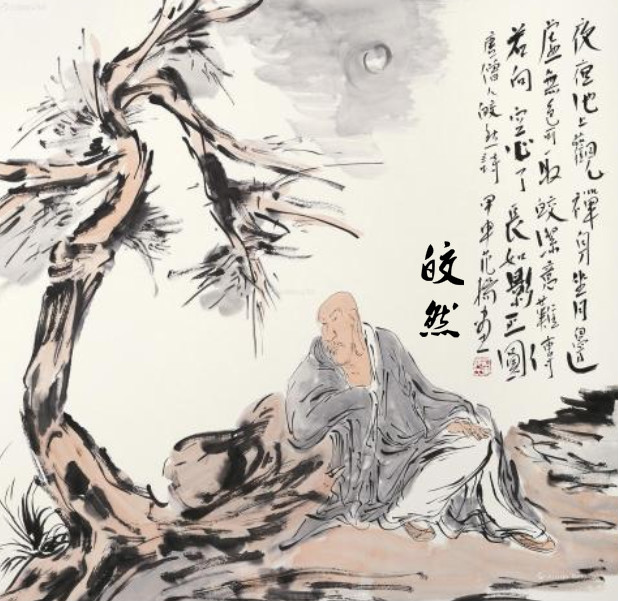 夜夜池上觀 禪身坐月邊
虛無色可取 皎潔意難傳
若向空心了 長如影正圓
唐僧人皎然詩
皎然